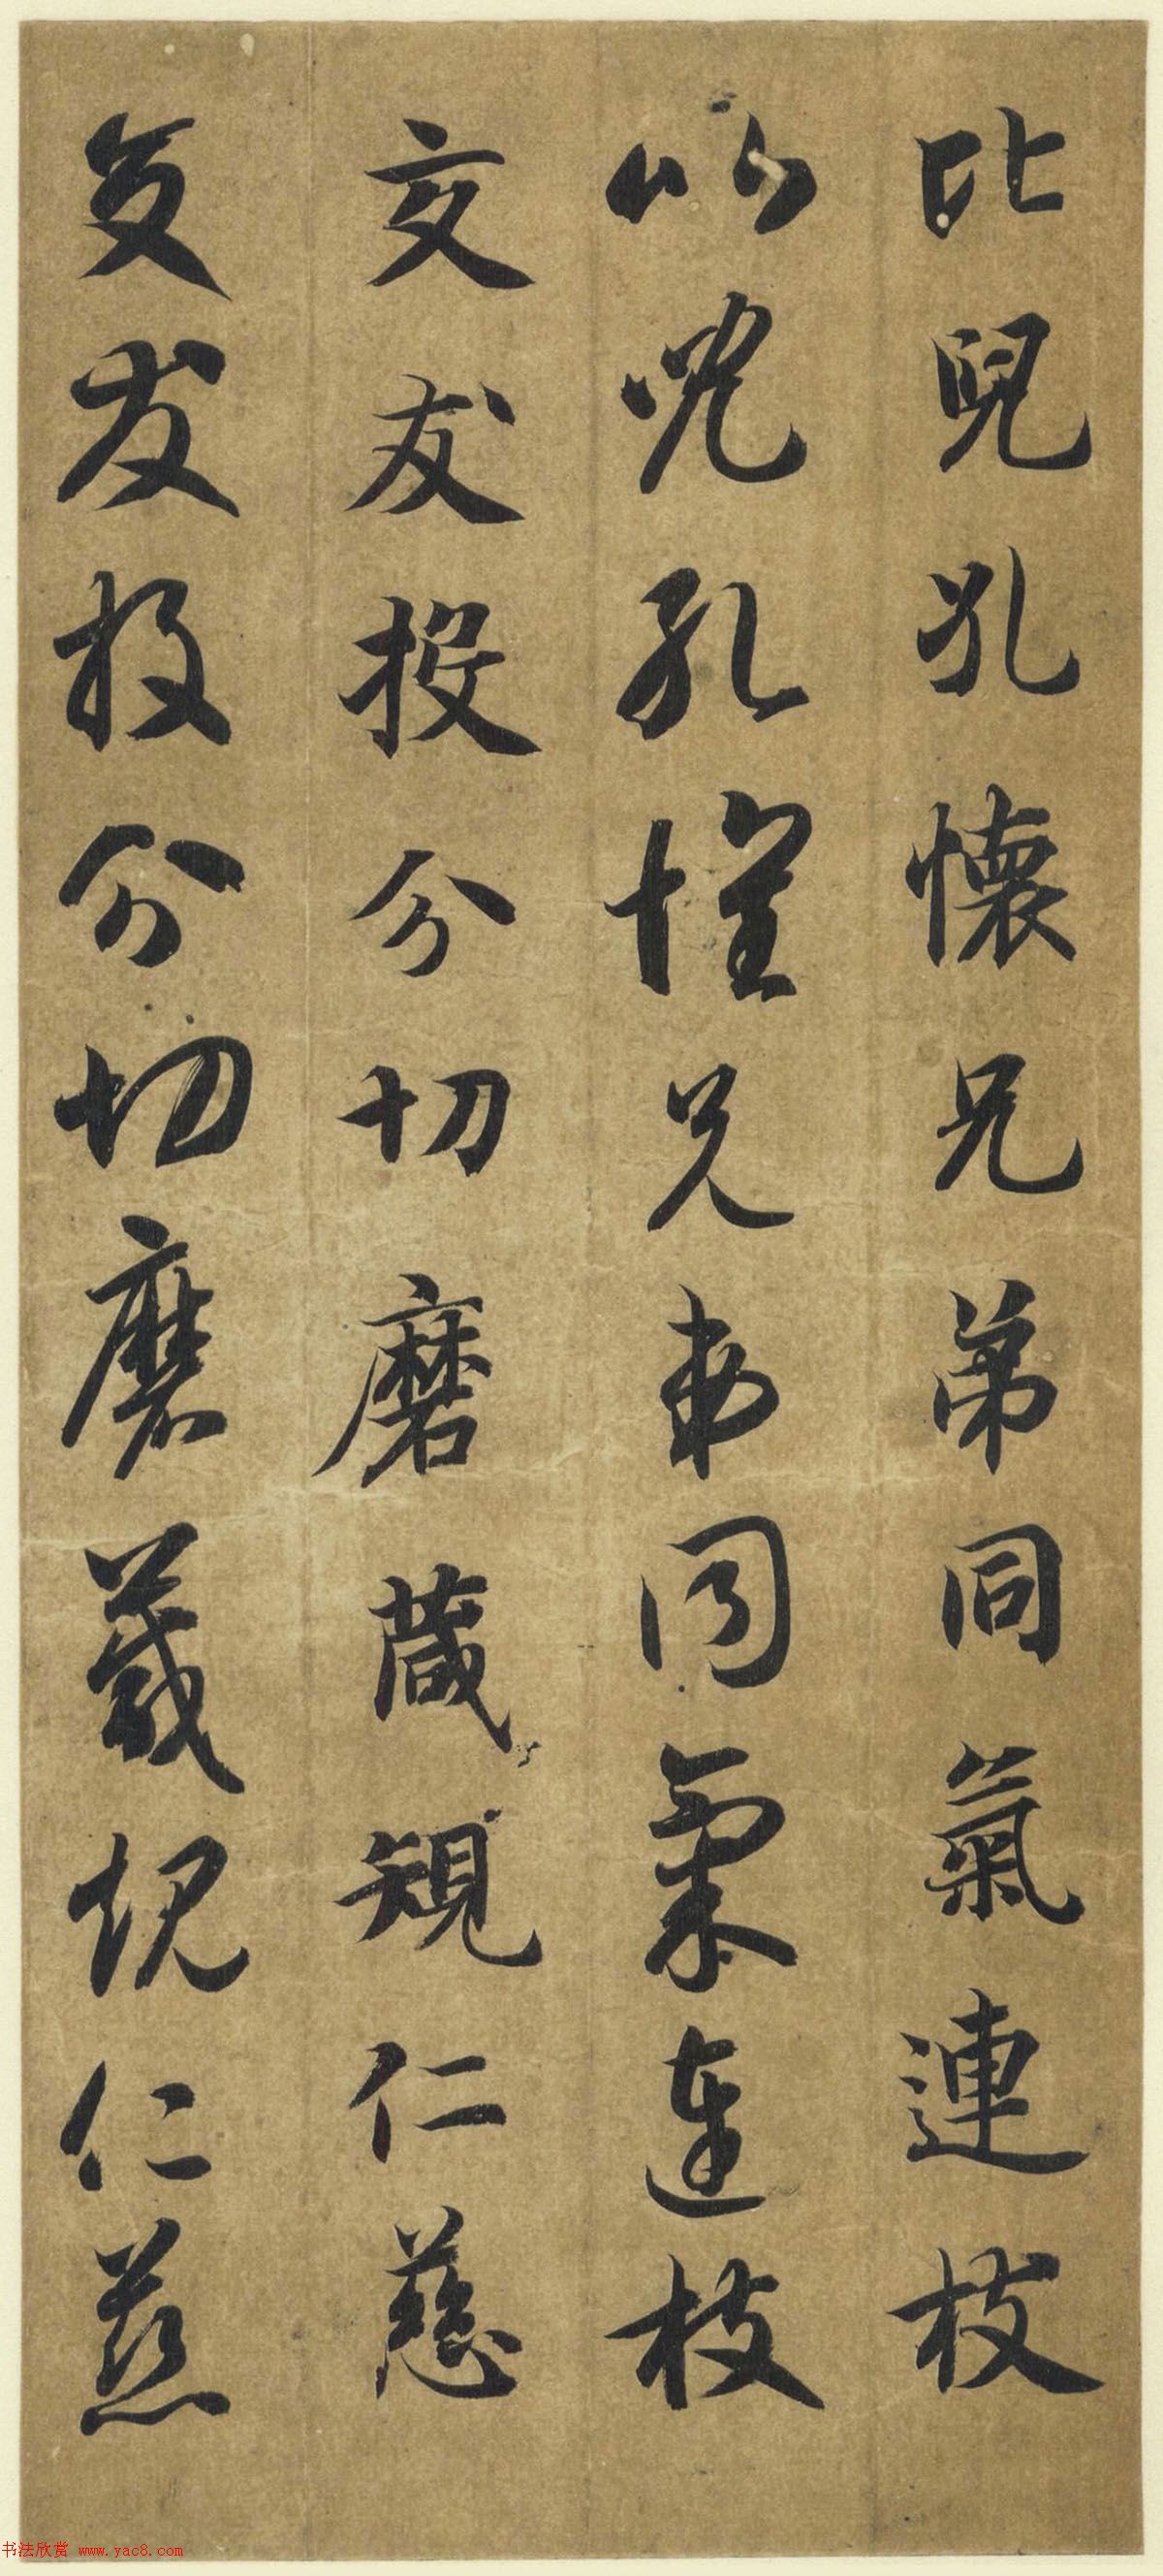 比兒孔懷兄弟同氣連枝
比兒孔懷兄弟同氣連枝
交友投分切磨葴規仁慈
交友投分切磨葴規仁慈
书法欣赏 www.yac8.com